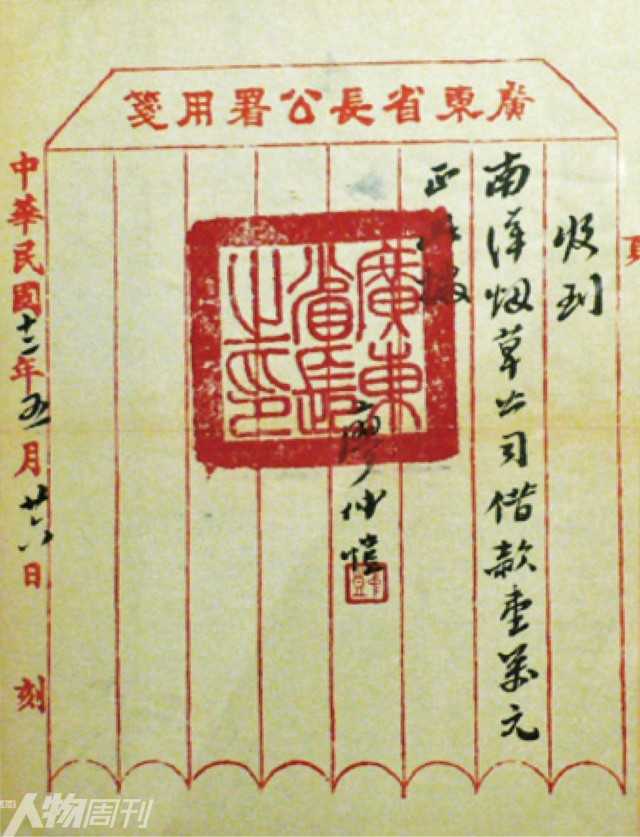 廣東省長公署用箋
收到
南洋烟草公司借款壹萬元
正
廣東
省長
之印
廖仲愷
中華民國十二年五月廿六日 刻
人物周刊